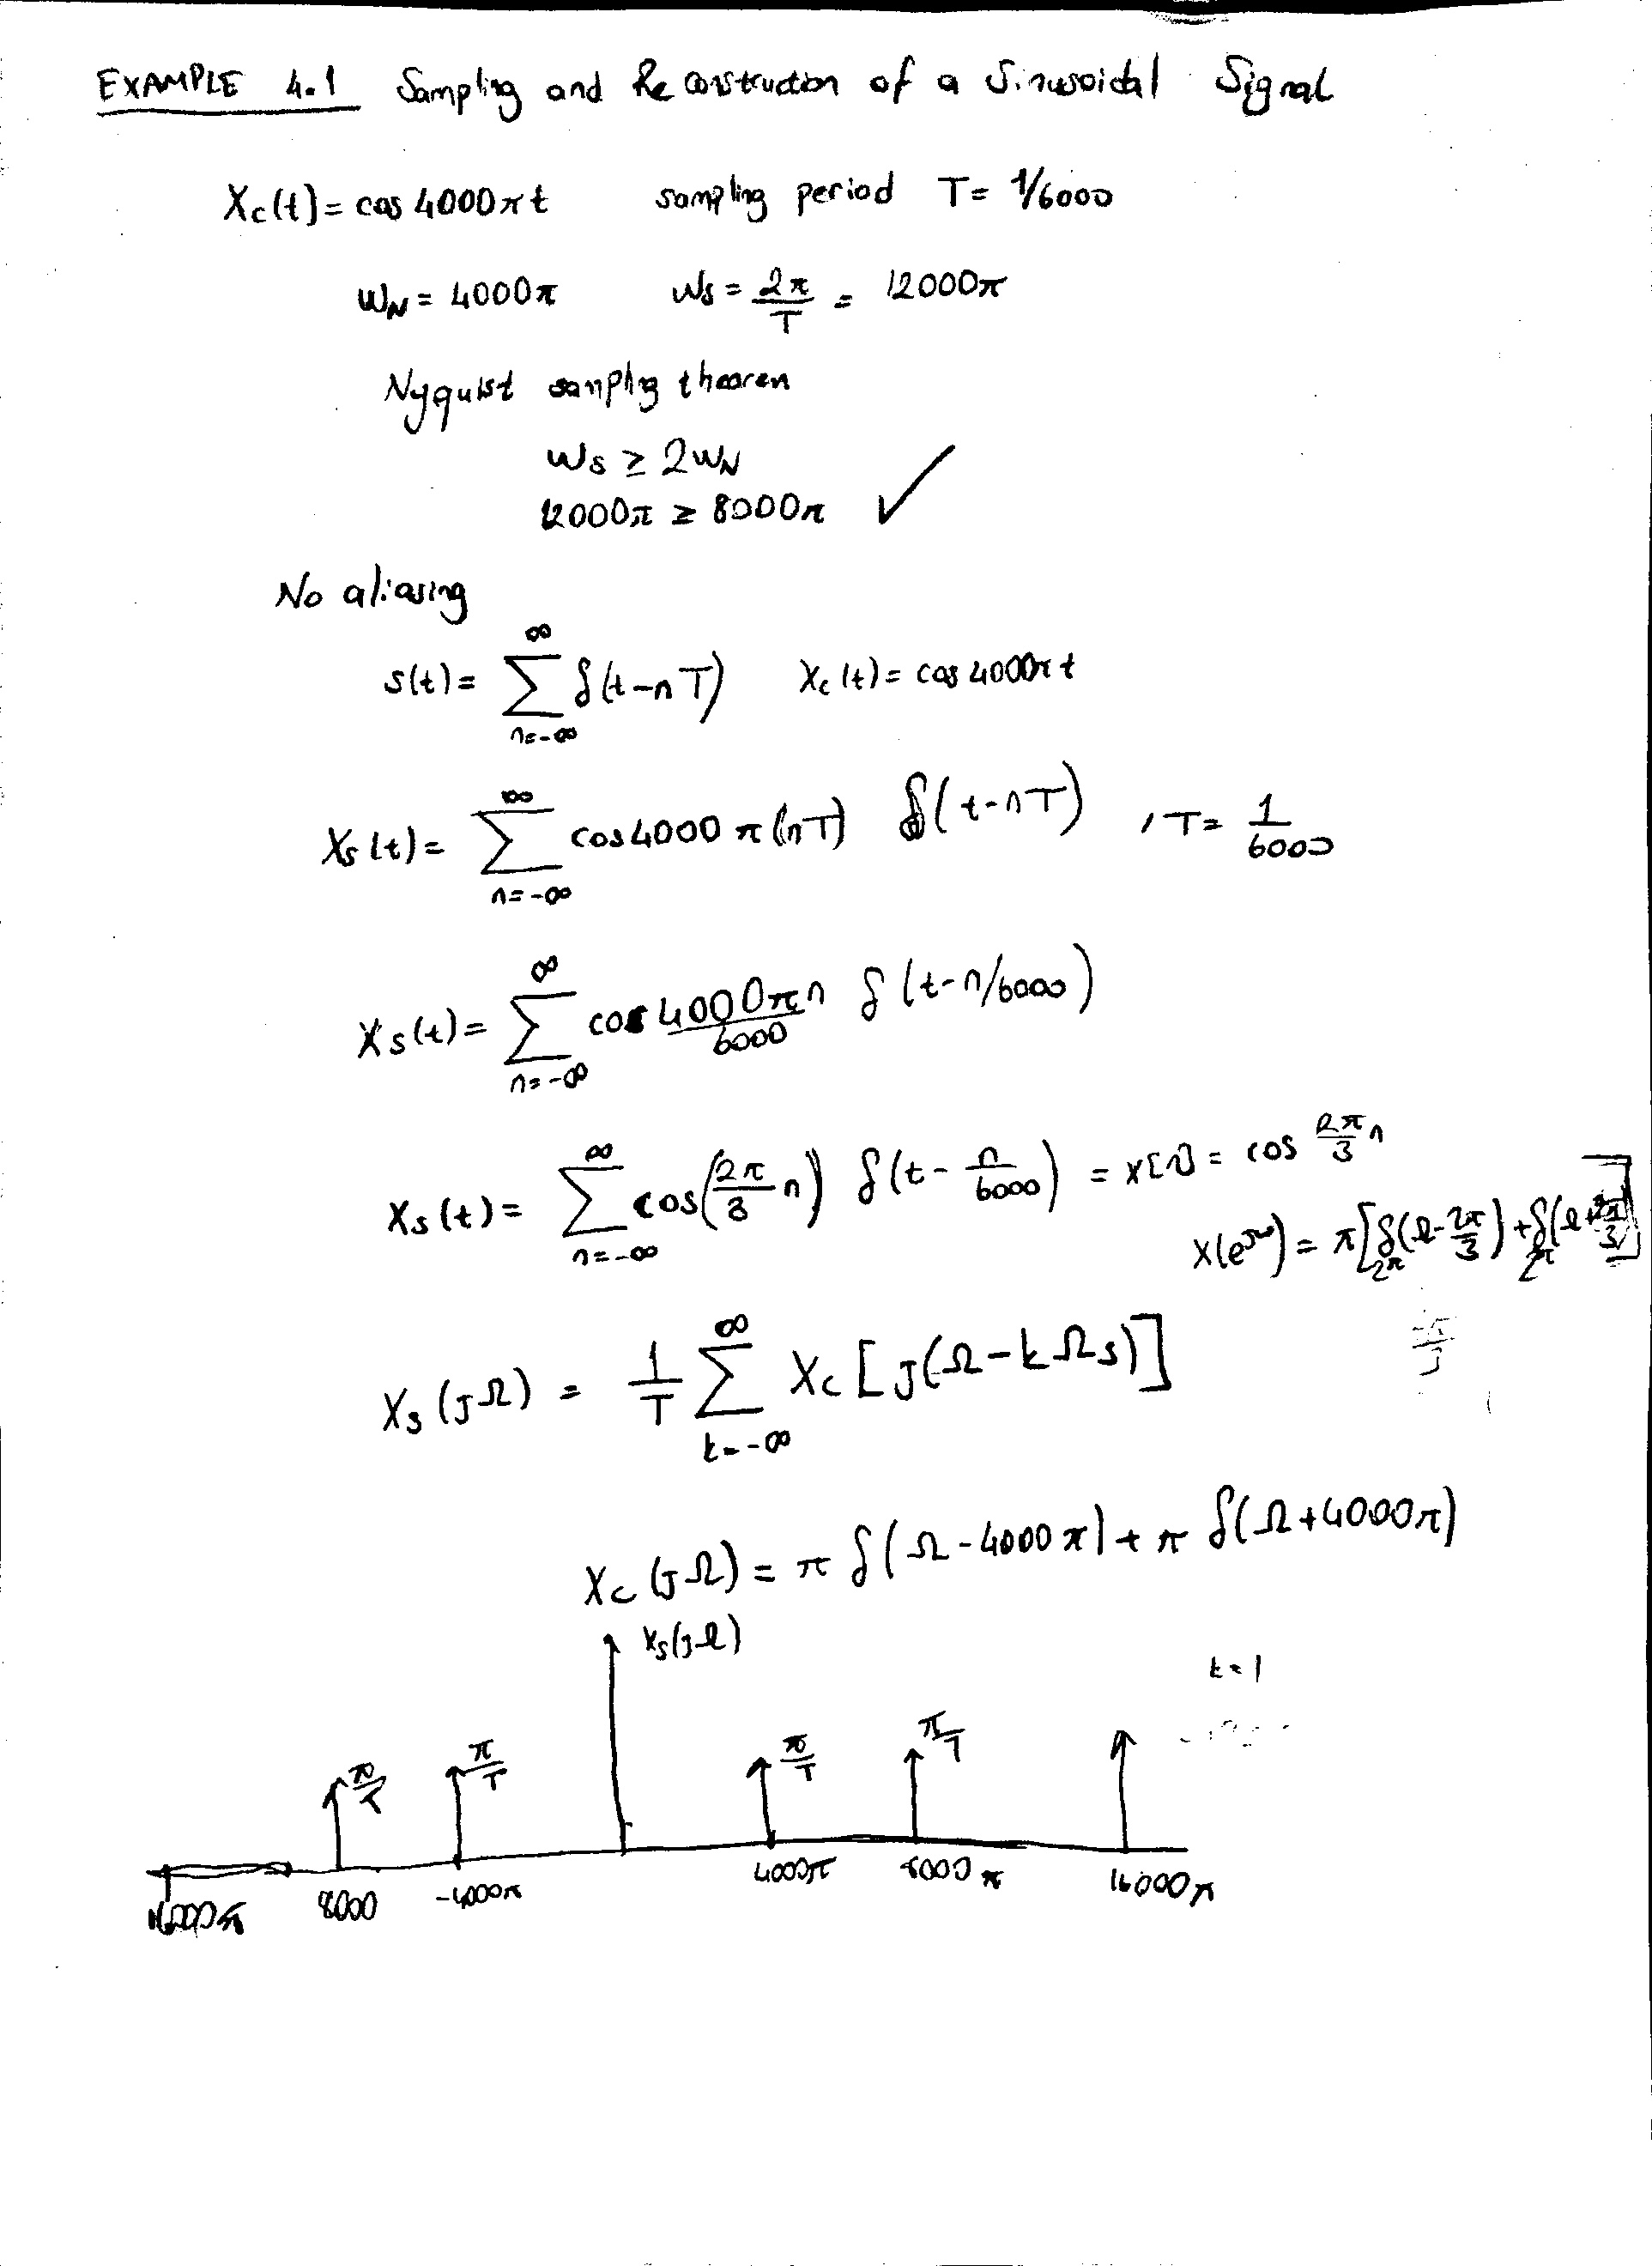 EXAMPLE 4.1 Sampling and Reconstruction of a Sinusoidal Signal
Xc(t) = cos 4000πt sampling period T = 1/6000
WN = 4000π Ws = 2π/T = 12000π
Nyquist sampling theorem
Ws ≥ 2WN
12000π ≥ 8000π ✓
No aliasing
s(t) = ∑_{n=-∞}^{∞} δ(t-nT) Xc(t) = cos 4000πt
Xs(t) = ∑_{n=-∞}^{∞} cos 4000π(nT) δ(t-nT) , T = 1/6000
Xs(t) = ∑_{n=-∞}^{∞} cos 4000πn/6000 δ(t-n/6000)
Xs(t) = ∑_{n=-∞}^{∞} cos(2π/3 n) δ(t - n/6000) = x[n] = cos 2π/3 n
X(e^{jω}) = π[δ_{2π}(Ω-2π/3) + δ_{2π}(Ω+2π/3)]
Xs(jΩ) = 1/T ∑_{k=-∞}^{∞} Xc[j(Ω-kΩs)]
Xc(jΩ) = π δ(Ω-4000π) + π δ(Ω+4000π)
Xs(jΩ)
k=1
π/T π/T π/T π/T
16000π 8000 -4000π 4000π 8000π 16000π